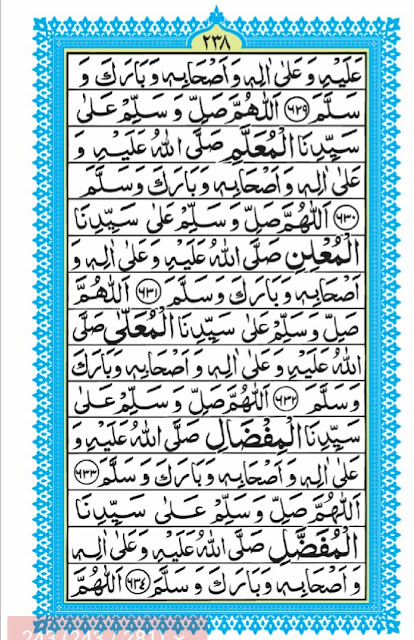 ٢٣٨
عَلَيْهِ وَعَلٰى اٰلِهٖ وَاَصْحَابِهٖ وَبَارَكَ وَ
سَلَّمَ ﴿٦٢٩﴾ اَللّٰهُمَّ صَلِّ وَسَلِّمْ عَلٰى
سَيِّدِنَا الْمُعَلَّمِ صَلَّى اللّٰهُ عَلَيْهِ وَ
عَلٰى اٰلِهٖ وَاَصْحَابِهٖ وَبَارَكَ وَسَلَّمَ
﴿٦٣٠﴾ اَللّٰهُمَّ صَلِّ وَسَلِّمْ عَلٰى سَيِّدِنَا
الْمُعْلِنِ صَلَّى اللّٰهُ عَلَيْهِ وَعَلٰى اٰلِهٖ وَ
اَصْحَابِهٖ وَبَارَكَ وَسَلَّمَ ﴿٦٣١﴾ اَللّٰهُمَّ
صَلِّ وَسَلِّمْ عَلٰى سَيِّدِنَا الْمُعَلّٰى صَلَّى
اللّٰهُ عَلَيْهِ وَعَلٰى اٰلِهٖ وَاَصْحَابِهٖ وَبَارَكَ
وَسَلَّمَ ﴿٦٣٢﴾ اَللّٰهُمَّ صَلِّ وَسَلِّمْ عَلٰى
سَيِّدِنَا الْمِفْضَالِ صَلَّى اللّٰهُ عَلَيْهِ وَ
عَلٰى اٰلِهٖ وَاَصْحَابِهٖ وَبَارَكَ وَسَلَّمَ ﴿٦٣٣﴾
اَللّٰهُمَّ صَلِّ وَسَلِّمْ عَلٰى سَيِّدِنَا
الْمُفَضَّلِ صَلَّى اللّٰهُ عَلَيْهِ وَعَلٰى اٰلِهٖ
وَاَصْحَابِهٖ وَبَارَكَ وَسَلَّمَ ﴿٦٣٤﴾ اَللّٰهُمَّ